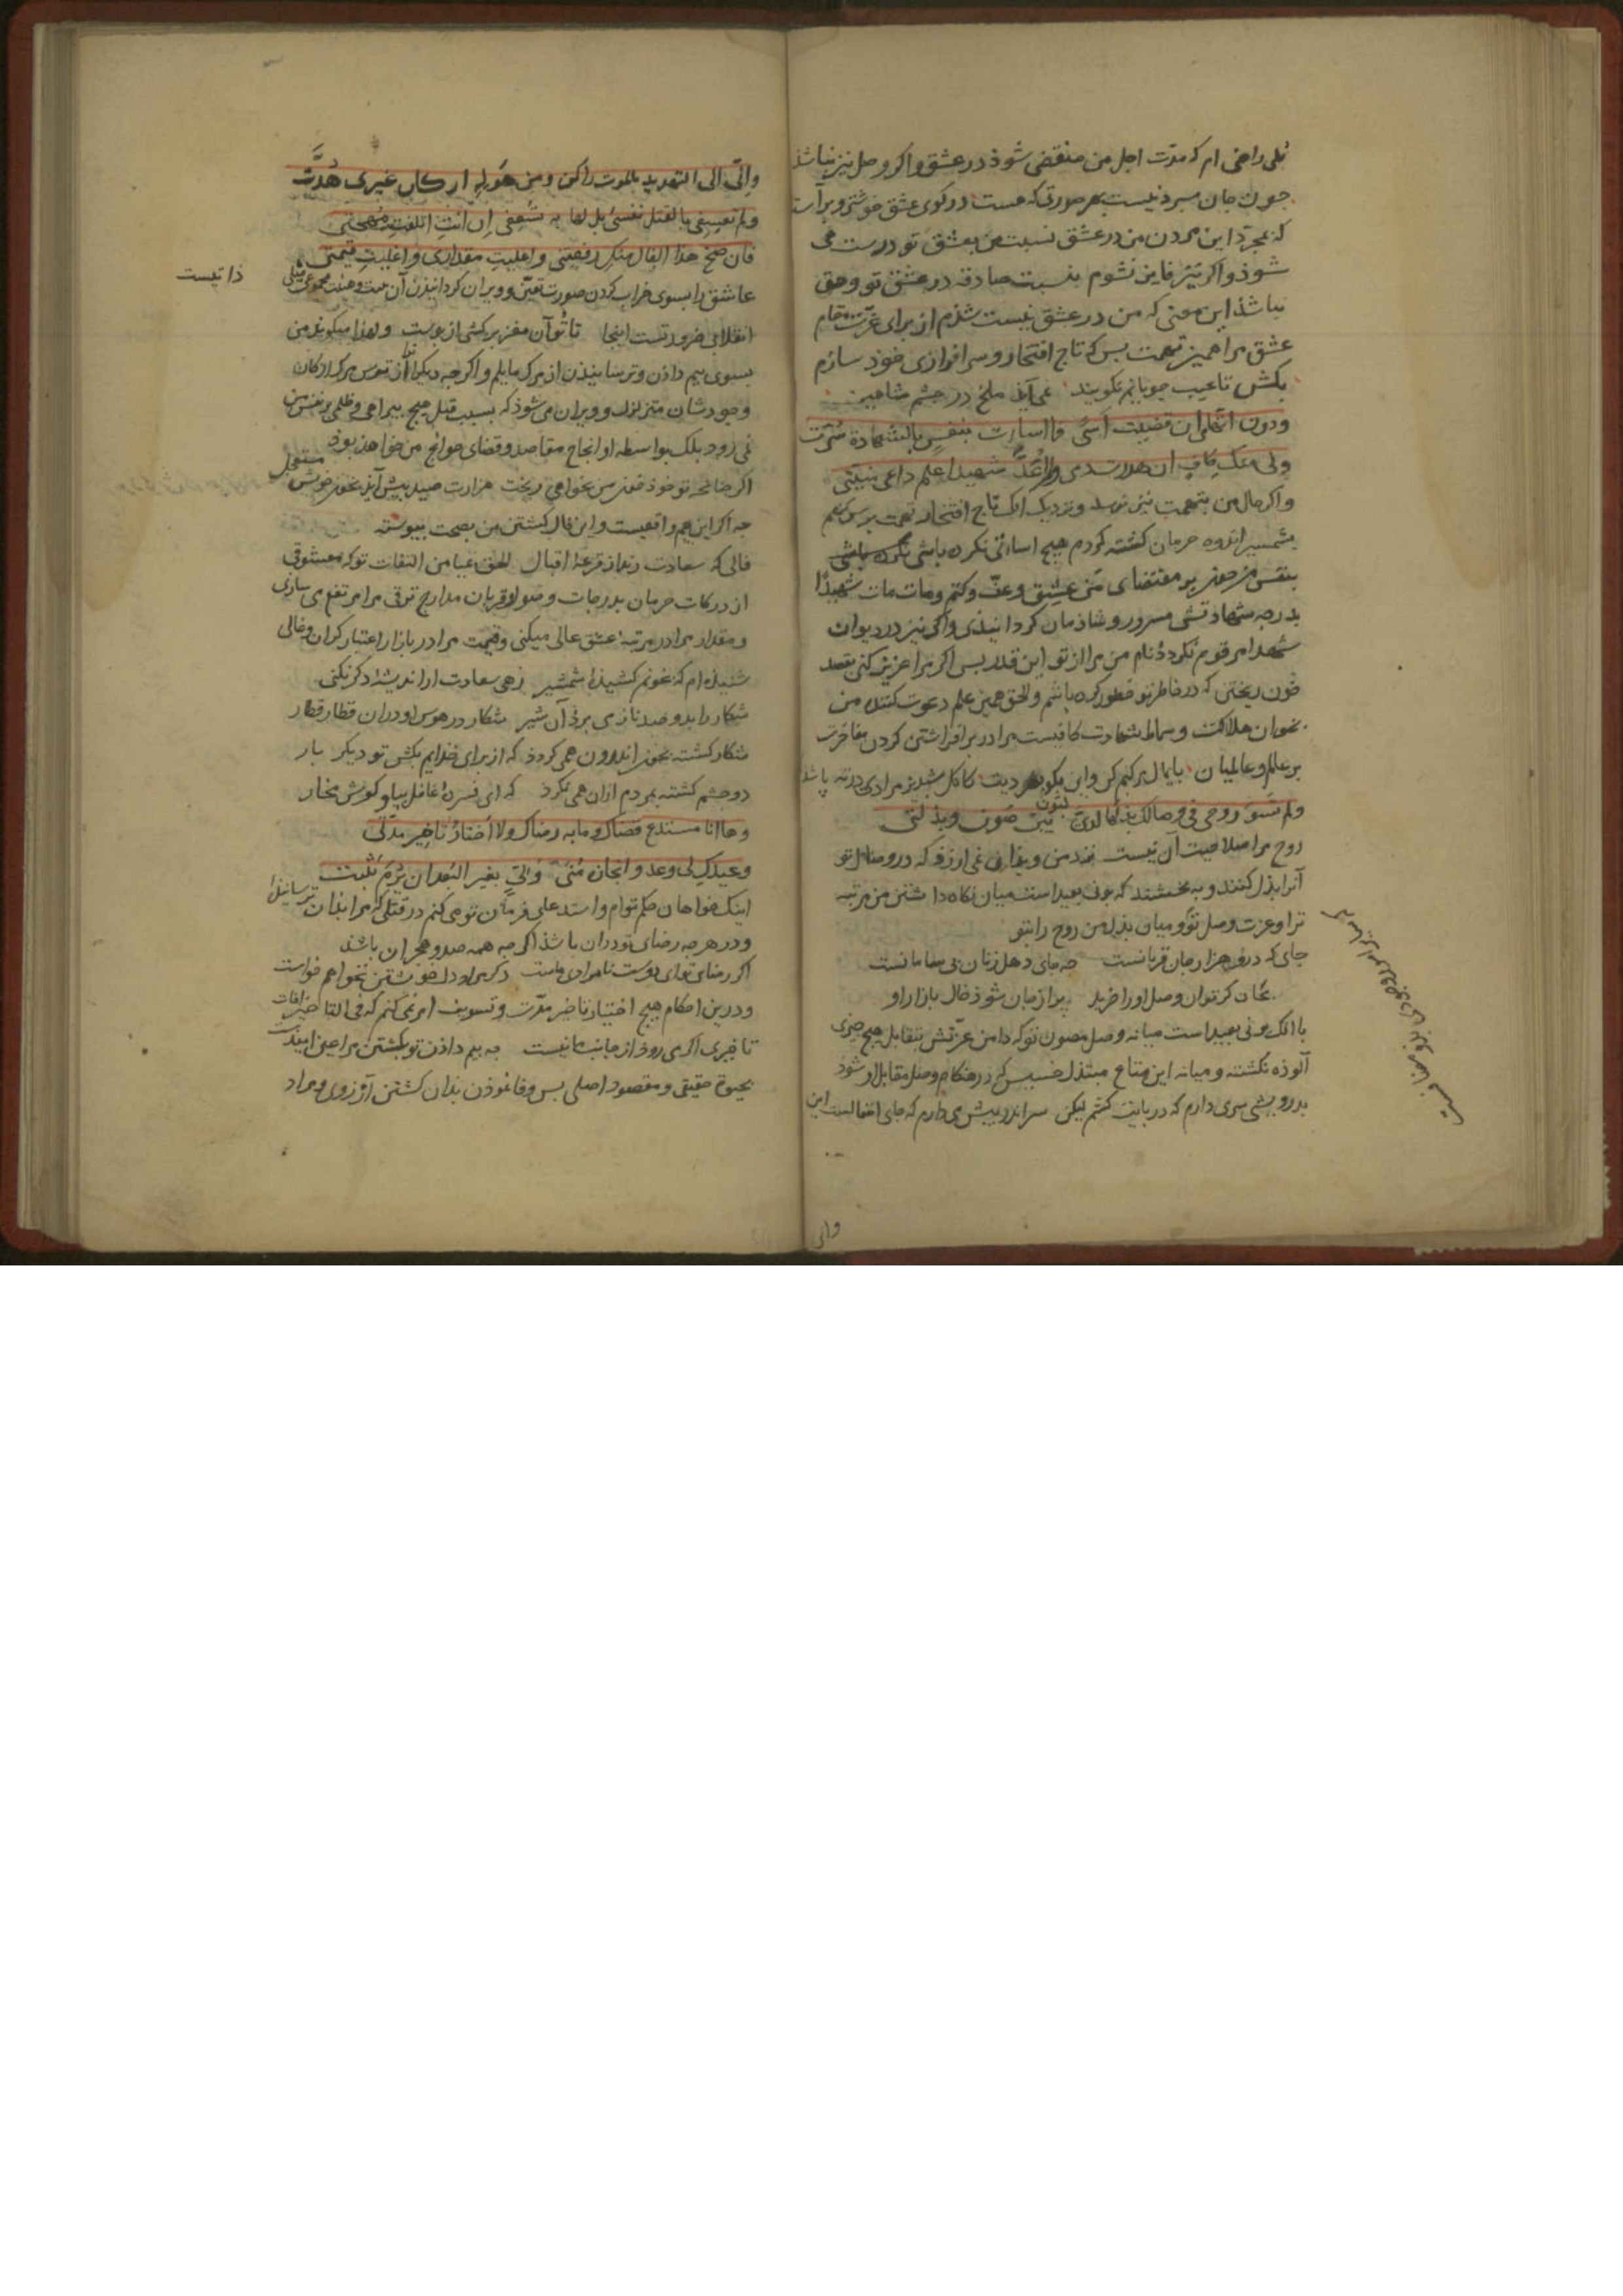 بلی راضی ام که مدّت اجل من منقضی شوذ در عشق و اکر وصل نیز نباشذ
جون جان سبردنیست بهر صورتی که هست در کوی عشق خوشتر و بر آستان
که بمجرّد این مردن من در عشق نسبت من بعشق تو درست می
شوذ و اکر نیز فایز نشوم بنسبت صادقه در عشق تو و حق
نباشذ این معنی که من در عشق نیست شذم از برای عزّت مقام
عشق مرا همین تهمت بس که تاج افتخار و سرافرازی خوذ سازم
بکش تا عیب جویانم نکویند نمی آید ملخ در جشم شاهین
ودون اتّهامی ان قضیت اسًی فما اسأت بنفس بالشهادة سُرّت
ولی منک کافٍ ان هدرت دمی ولم اُعَدَّ شهیدا علم داعی منیّتی
و اکر حال من بتهمت نیز نرسد و نزدیک انک تاج افتخار تهمت بر سر نهم
بشمشیر اندوه حرمان کشته کردم هیج اساءتی نکرده باشی
بنفس من جون بر مقتضای مَن عشِق و عفّ و کتم و مات مات شهیدًا
بدرجه شهادتش مسرور و شاذمان کردانیذی و اکر نیز در دیوان
شهدا مرقوم نکردذ نام من مرا از تو این قدر بس اکر مرا عزیز کنی بقصد
خون ریختن که در خاطر تو خطور کرده باشم و الحق همین علم دعوت کننده من
بخوان هلاکت و سماط شهادت کافیست مرا در بر افراشتن کردن مفاخرت
بر عالم و عالمیان بایمال
ولم تسوَ روحی فی وصالک بذلها لدیّ لبَون بین صَون وبِذلتی
روح مرا صلاحیت آن نیست نزد من و بهایی نمی ارزذ که در وصال تو
آنرا بذل کنند و به بخشند که بونی بعید است میان نکاه داشتن من مرتبه
ترا و عزت وصل تو و میان بذل من روح را بتو
جای که درو هزار جان قربانست جه جای دهل زنان بی سامانست
بجان کر توان وصل او را خرید بر از جان شوذ خال بازار او
با آنک بونی بعید است میانه وصل مصون تو که دامن عزّتش بتقابل هیج جیزی
آلوذه نکشته و میانه این متاع مبتذل خسیس که در هنکام وصل مقابل او شوذ
بدرویشی سری دارم که در بایت کشم لیکن سر اندر بیش می دارم که جای انفعالست این
وانی
وانّی الی التهدید بالموت راکن ومن هَوله ارکان غیری هُدّت
ولم تعسفی بالقتل نفسی بل لها به تُسعفی اِن انتِ اتلفتِ مُهجتی
فان صحّ هذا الفال منکِ رفعتِنی واعلیتِ مقداری واغلیتِ قیمتی
عاشق را بسوی خراب کردن صورت تعیّن و ویران کردانیذن آن میلی
ذاتیست
انقلابی ضرورتست اینجا تا تو آن مغز برکشی از بوست و لهذا میکویذ من
بسوی بیم داذن و ترسانیذن از مرک مایلم و اکرجه دیکران را از ترس مرک ارکان
وجودشان متزلزل و ویران می شوذ که بسبب قتل هیج بیراهی و ظلمی بر نفس من
نمی روذ بلک بواسطه او انجاح مقاصد و قضای حوایج من خواهذ بوذ
اکر جنانجه تو خوذ خون من بخواهی ریخت هزارت صید بیش آید بخون خویش مستعجل
جه اکر این بیم واقعیست و این فال کشتن من بصحت بیوسته
فالی که سعادت زند از قرعهٔ اقبال الحق بمیامن التفات تو که معشوقی
از درکات حرمان بدرجات وصول و قربان مدارج ترقی مرا مرتفع می سازی
و مقدار مرا در مرتبهٔ عشق عالی میکنی و قیمت مرا در بازار اعتبار کران و غالی
شنیذه ام که بخونم کشیذهٔ شمشیر زهی سعادت ار اندیشهٔ دکر نکنی
شکار را بدو صد ناز می برد آن شیر شکار در هوس او دوان قطار قطار
شکار کشته بخون اندرون همی کردذ که از برای خذایم بکش تو دیکر بار
دو جشم کشته بمردم ازان همی نکرذ که ای فسرده غافل بیا و کوش مخار
وها انا مستدعٍ قضاک وما به رضاک ولا اختارُ تاخیر مدّتی
وعیدکِ لی وعد وانجازه مُنی وَلیٍّ بغیر البُعد ان یُرمَ یَثبت
اینک خواهان حکم توام و استدعای فرمان تو می کنم در قتلی که مرا بذان ترسانیذهٔ
و در هرجه رضای تو دران باشذ اکرجه همه صد و هجران باشذ
اکر رضای تو ای دوست نامرادی ماست دکر مراد دل خویشتن نخواهم خواست
و درین احکام هیج اختیار تاخیر مدّت و تسویف امر نمی کنم که فی التاخیر آفات
تاخیری اکر می روذ از جانب ما نیست جه بیم داذن تو بکشتن مرا عین امیدست
بحیوة حقیقی و مقصود اصلی بس وفا نموذن بذان کشتن آرزوی و مراد